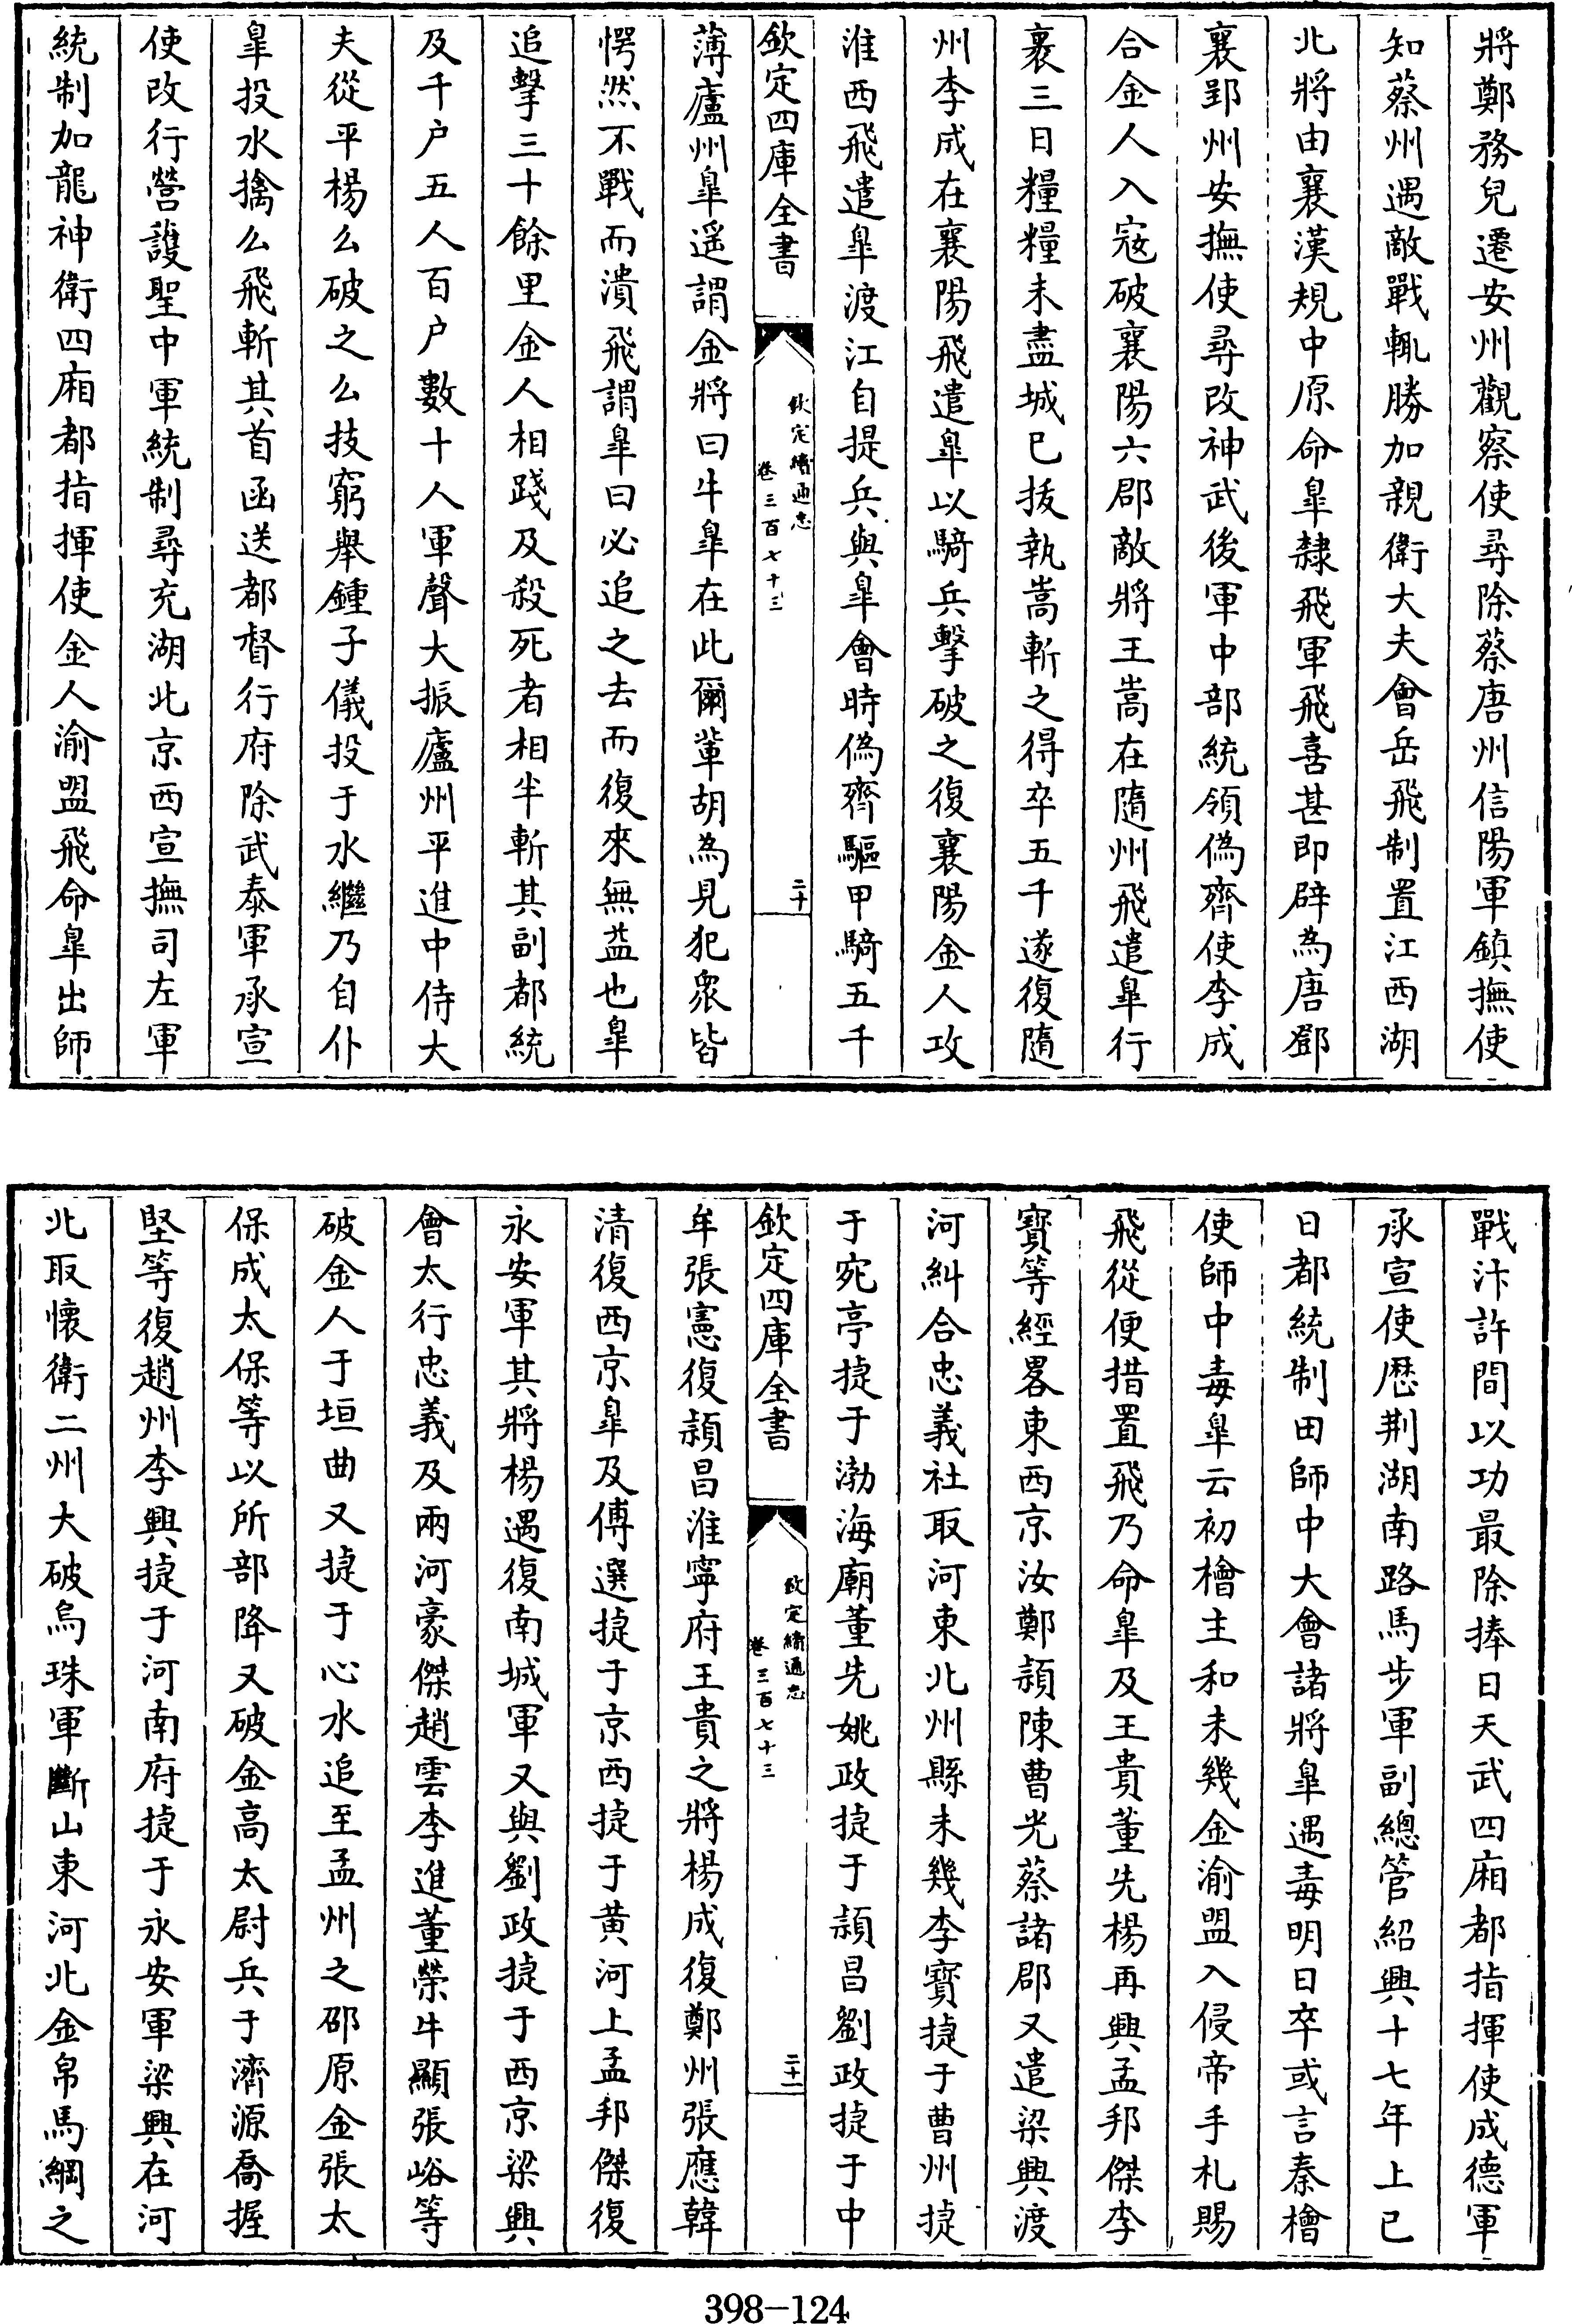 將鄭務兒遷安州觀察使尋除蔡唐州信陽軍鎮撫使
知蔡州遇敵戰輒勝加親衛大夫會岳飛制置江西湖
北將由襄漢規中原命臯隸飛軍飛喜甚即辟為唐鄧
襄郢州安撫使尋改神武後軍中部統領偽齊使李成
合金人入宼破襄陽六郡敵將王嵩在隨州飛遣臯行
襄三日糧糧未盡城已拔執嵩斬之得卒五千遂復隨
州李成在襄陽飛遣臯以騎兵擊破之復襄陽金人攻
淮西飛遣臯渡江自提兵與臯會時偽齊驅甲騎五千
欽定四庫全書
欽定續通志
卷三百七十三
二十
薄廬州臯遥謂金將曰牛臯在此爾輩胡為見犯衆皆
愕然不戰而潰飛謂臯曰必追之去而復來無益也臯
追擊三十餘里金人相踐及殺死者相半斬其副都統
及千户五人百户數十人軍聲大振廬州平進中侍大
夫從平楊么破之么技窮舉鍾子儀投于水繼乃自仆
臯投水擒么飛斬其首函送都督行府除武泰軍承宣
使改行營護聖中軍統制尋充湖北京西宣撫司左軍
統制加龍神衛四廂都指揮使金人渝盟飛命臯出師
戰汴許間以功最除捧日天武四廂都指揮使成德軍
承宣使歴荆湖南路馬步軍副總管紹興十七年上已
日都統制田師中大會諸將臯遇毒明日卒或言秦檜
使師中毒臯云初檜主和未幾金渝盟入侵帝手札賜
飛從便措置飛乃命臯及王貴董先楊再興孟邦傑李
寶等經畧東西京汝鄭頴陳曹光蔡諸郡又遣梁興渡
河糾合忠義社取河東北州縣未幾李寶捷于曹州捷
于宛亭捷于渤海廟董先姚政捷于頴昌劉政捷于中
欽定四庫全書
欽定續通志
卷三百七十三
二十一
牟張憲復頴昌淮寧府王貴之將楊成復鄭州張應韓
清復西京臯及傅選捷于京西捷于黄河上孟邦傑復
永安軍其將楊遇復南城軍又與劉政捷于西京梁興
會太行忠義及兩河豪傑趙雲李進董榮牛顯張峪等
破金人于垣曲又捷于心水追至孟州之邵原金張太
保成太保等以所部降又破金高太尉兵于濟源喬握
堅等復趙州李興捷于河南府捷于永安軍梁興在河
北取懷衛二州大破烏珠軍斷山東河北金帛馬綱之
398-124